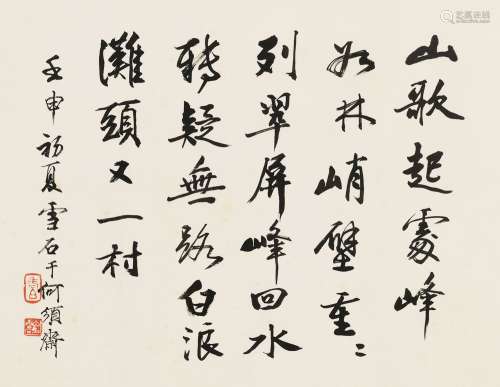 山歌起處峰
如林峭壁重〻
列翠屏峰回水
轉疑無路白浪
灘頭又一村
壬申初夏雪石于何須齋